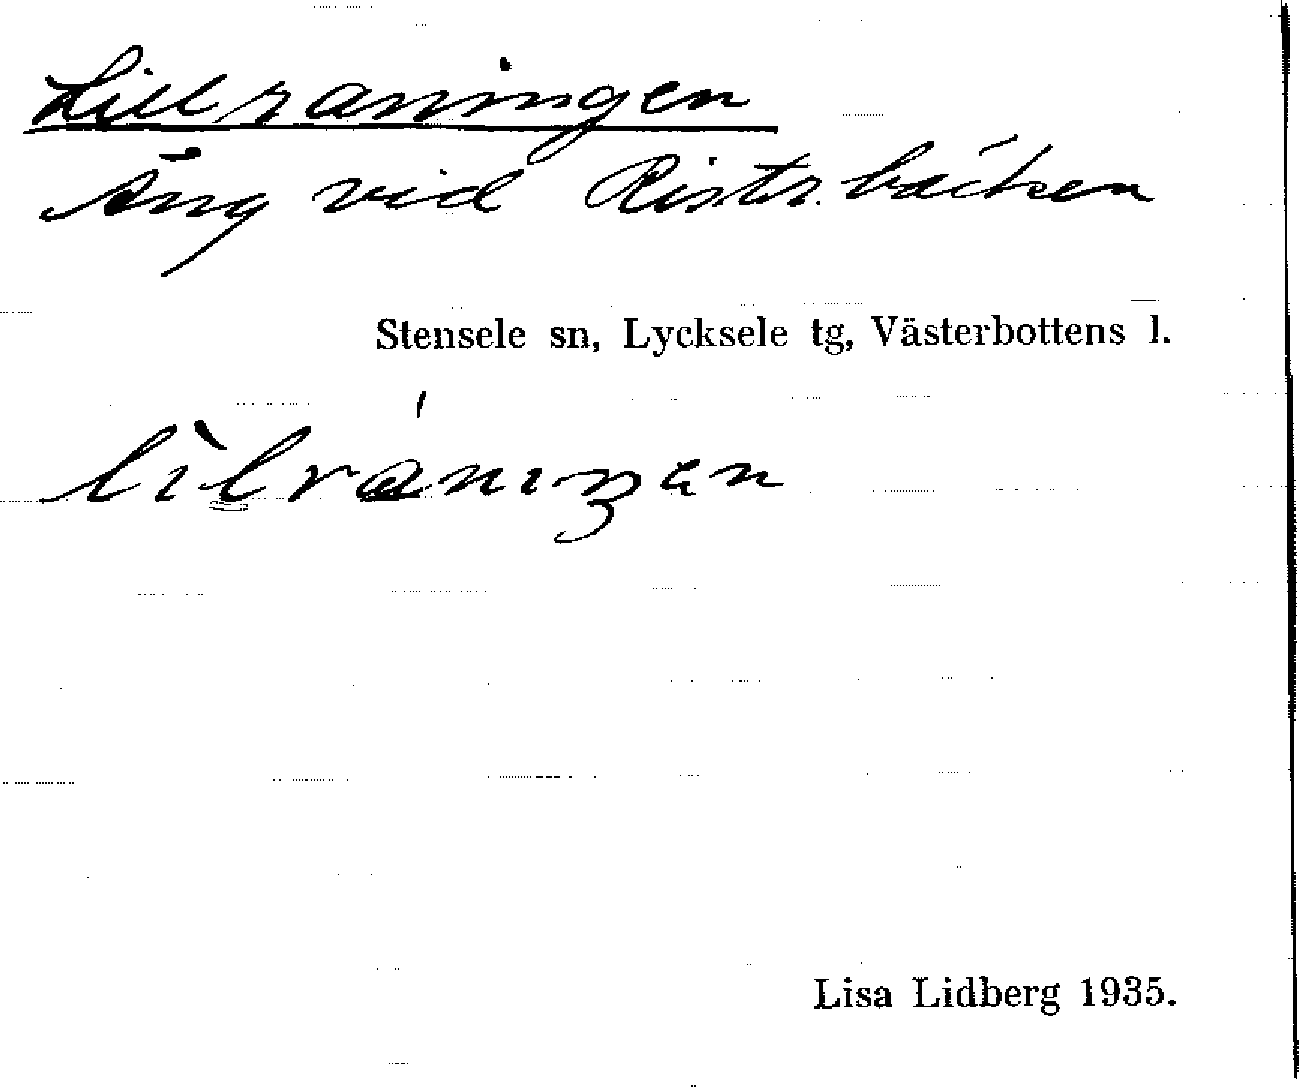 Lillraningen
Äng vid Ristr.bäcken
Stensele sn, Lycksele tg, Västerbottens l.
Lisa Lidberg 1935.